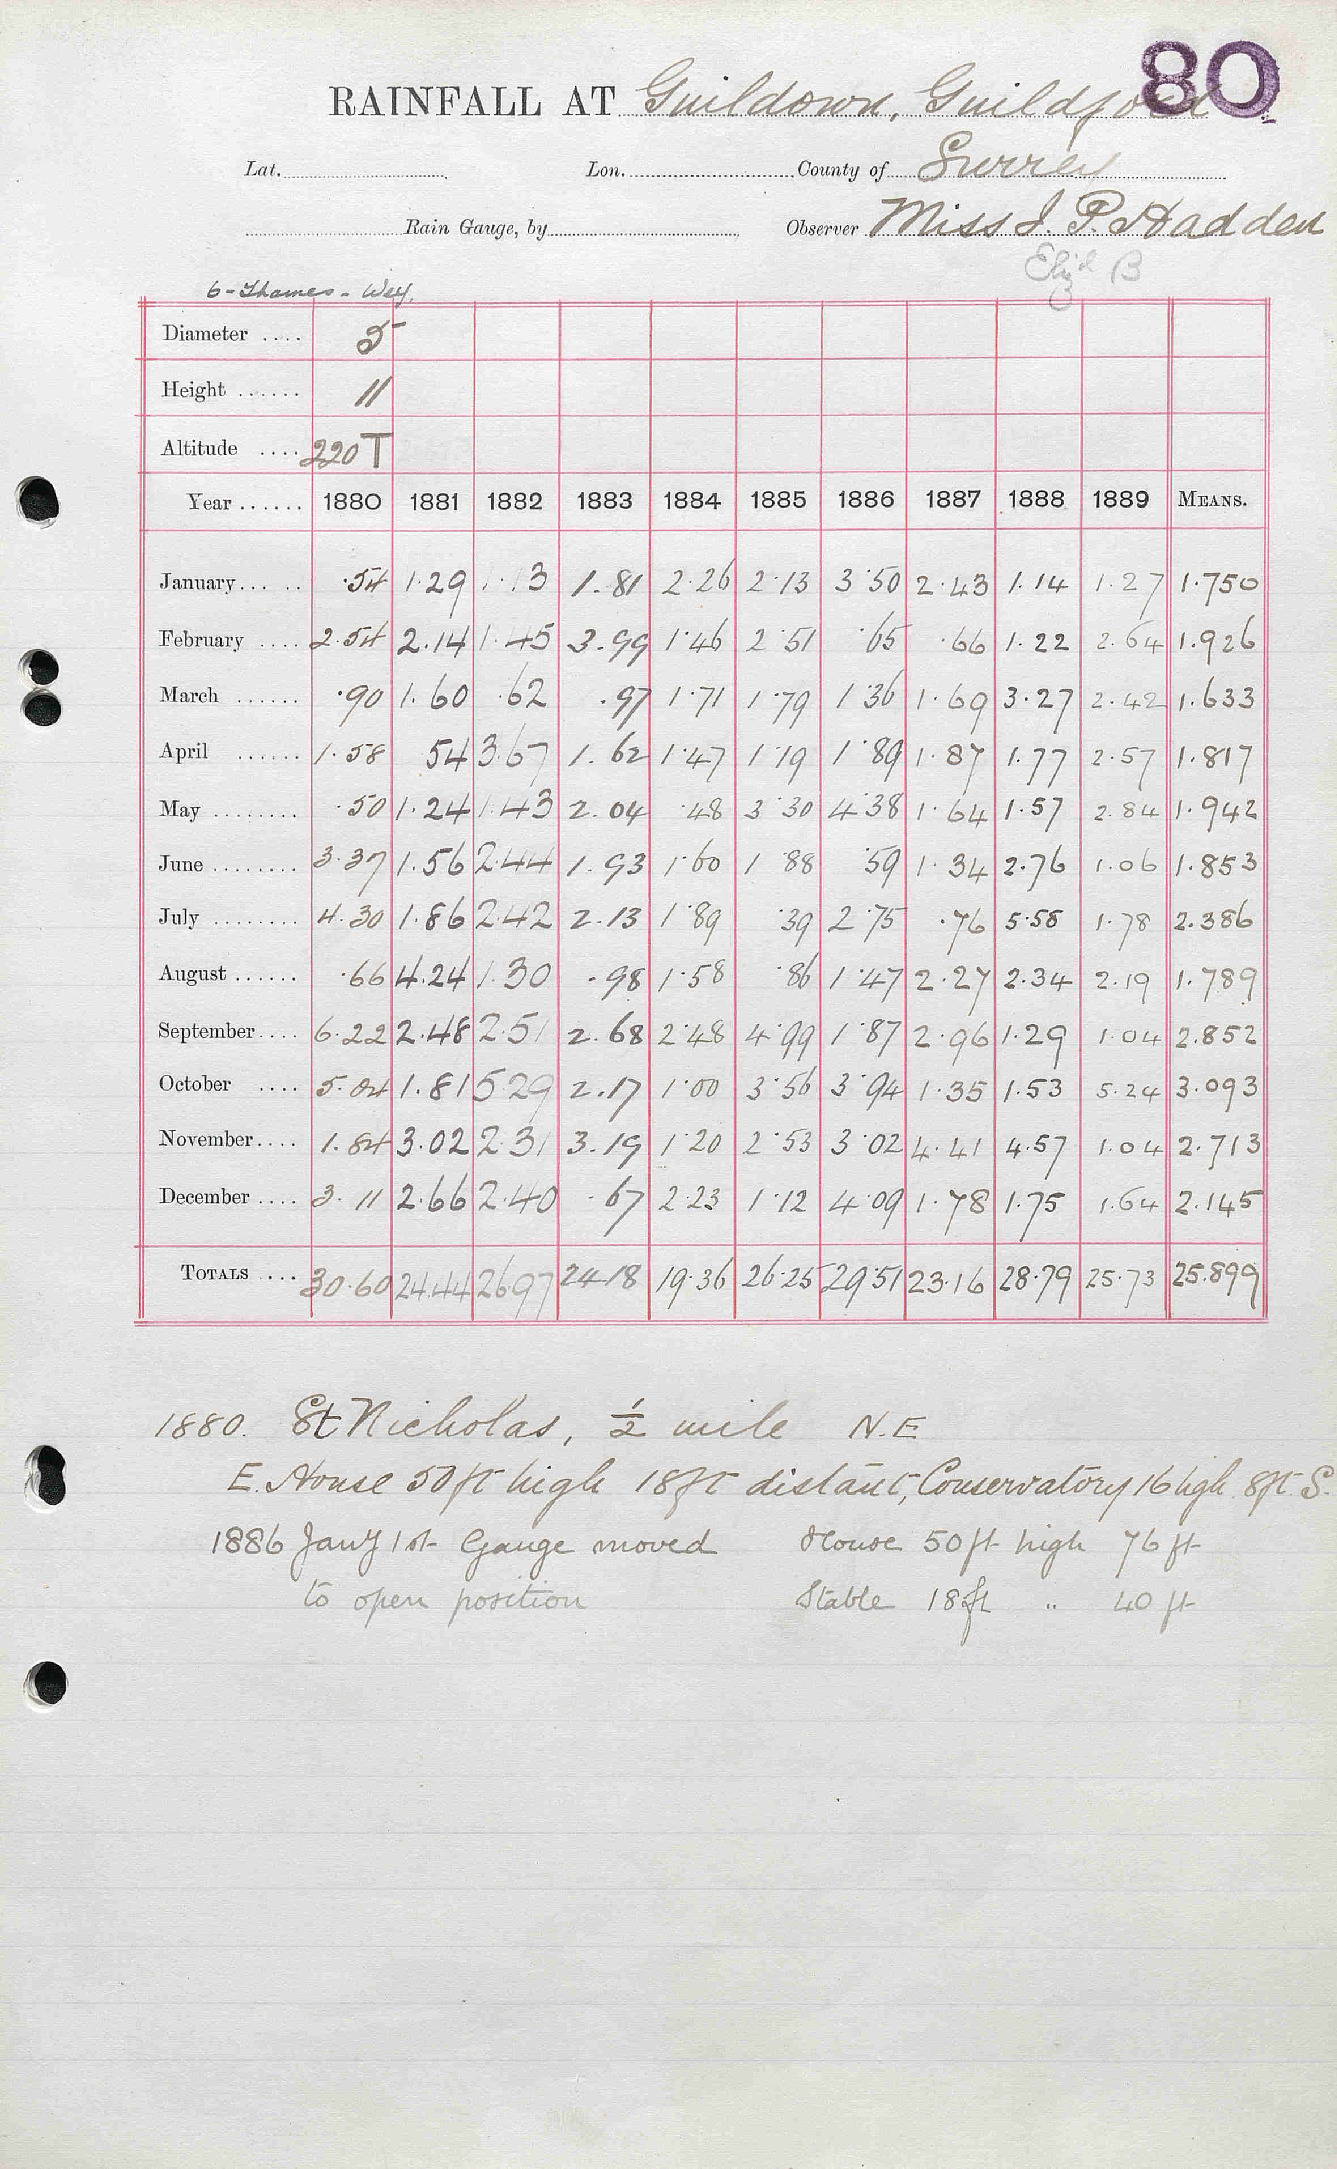 80
RAINFALL AT Guildown, Guildford
Lat. Lon. County of Surrey
Rain Gauge, by Observer Miss J. P. Hadden
B
6-Thames - Wey.
Diameter .... 5
Height ...... 11
Altitude .... 220 T
Year ...... 1880 1881 1882 1883 1884 1885 1886 1887 1888 1889 MEANS.
January...... .54 1.29 1.13 1.81 2.26 2.13 3.50 2.43 1.14 1.27 1.750
February .... 2.54 2.14 1.45 3.99 1.46 2.51 .65 .66 1.22 2.64 1.926
March ...... .90 1.60 .62 .97 1.71 1.79 1.36 1.69 3.27 2.42 1.633
April ...... 1.58 54 3.67 1.62 1.47 1.19 1.89 1.87 1.77 2.57 1.817
May ........ .50 1.24 1.43 2.04 .48 3.30 4.38 1.64 1.57 2.84 1.942
June ........ 3.37 1.56 2.44 1.93 1.60 1.88 .59 1.34 2.76 1.06 1.853
July ........ 4.30 1.86 2.42 2.13 1.89 .39 2.75 .76 5.58 1.78 2.386
August ...... .66 4.24 1.30 .98 1.58 .86 1.47 2.27 2.34 2.19 1.789
September.... 6.22 2.48 2.51 2.68 2.48 4.99 1.87 2.96 1.29 1.04 2.852
October .... 5.04 1.81 5.29 2.17 1.00 3.56 3.94 1.35 1.53 5.24 3.093
November.... 1.84 3.02 2.31 3.19 1.20 2.53 3.02 4.41 4.57 1.04 2.713
December .... 3.11 2.66 2.40 .67 2.23 1.12 4.09 1.78 1.75 1.64 2.145
TOTALS ... 30.60 24.44 26.97 24.18 19.36 26.25 29.51 23.16 28.79 25.73 25.899
1880. St Nicholas, ½ mile N.E
E. House 50ft high 18ft distant, Conservatory 16 high 8ft. S.
1886 Jany 1st Gauge moved House 50 ft high 76 ft
to open position Stable 18ft " 40 ft